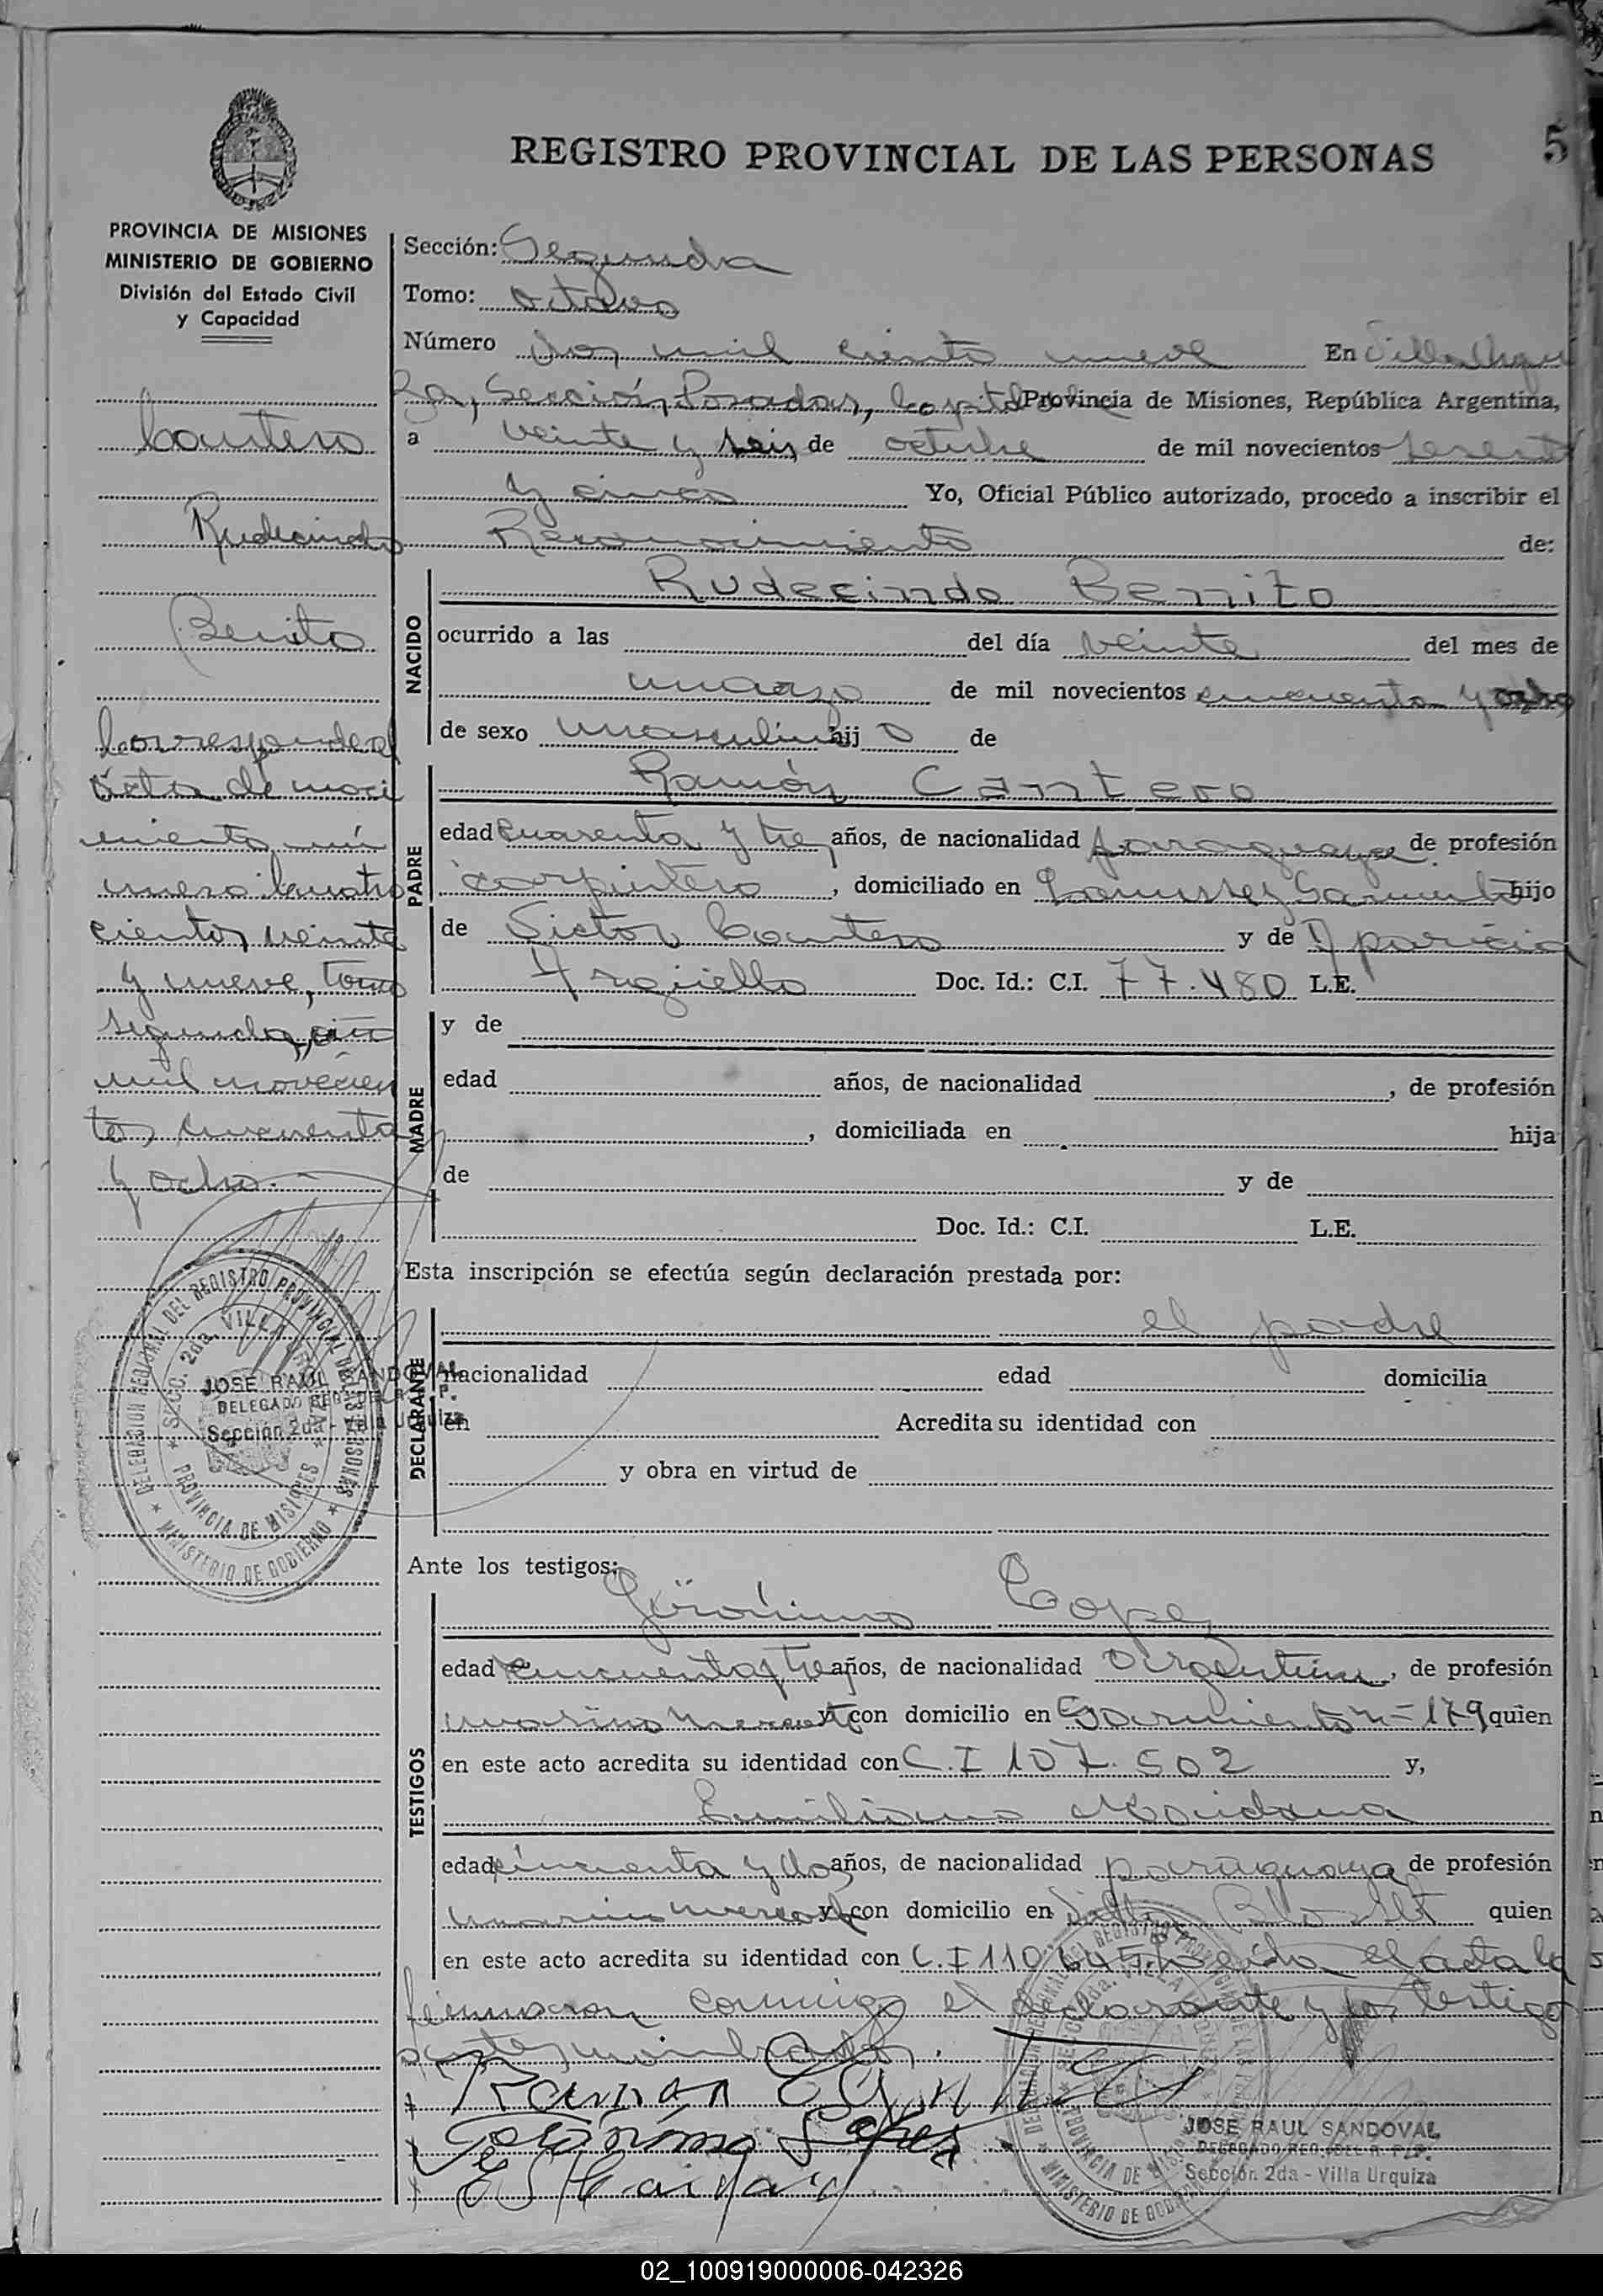 REGISTRO PROVINCIAL DE LAS PERSONAS
5
PROVINCIA DE MISIONES
MINISTERIO DE GOBIERNO
División del Estado Civil
y Capacidad
Cantero
Rudecindo
Benito
Corresponde al
acta de naci
miento nú
mero cuatro
cientos veinte
y nueve, tomo
segundo, año
mil novecien
tos cincuenta
y ocho.-
Sección: Segunda
Tomo: octavo
Número dos mil ciento nueve En Villa Urqui
za, Sección, Posadas, Capital Provincia de Misiones, República Argentina,
a veinte y seis de octubre de mil novecientos sesenta
y cinco Yo, Oficial Público autorizado, procedo a inscribir el
Reconocimiento de:
NACIDO
Rudecindo Benito
ocurrido a las del día veinte del mes de
marzo de mil novecientos cincuenta y ocho
de sexo masculino hij o de
PADRE
Ramón Cantero
edad cuarenta y tres años, de nacionalidad paraguaya de profesión
carpintero, domiciliado en Sarmiento hijo
de Sictor Cantero y de Aparicia
Argüello Doc. Id.: C.I. 77.480 L.E.
MADRE
y de
edad años, de nacionalidad , de profesión
, domiciliada en hija
de y de
Doc. Id.: C.I. L.E.
Esta inscripción se efectúa según declaración prestada por:
DECLARANTE
el padre
nacionalidad edad domicilia
en Acredita su identidad con
y obra en virtud de
Ante los testigos:
TESTIGOS
Gerónimo Lopez
edad cincuenta y tres años, de nacionalidad Argentina, de profesión
marino mercante y con domicilio en Sarmiento n=179 quien
en este acto acredita su identidad con C.I 107.502 y,
Emiliano Maidana
edad cincuenta y dos años, de nacionalidad paraguaya de profesión
marino mercante y con domicilio en Villa quien
en este acto acredita su identidad con C.I 110.645. Leída el acta la
firmaron conmigo el declarante y los testigos
antes nombrados.
Ramon Cantero
Gerónimo Lopez
E Maidana
DELEGACION REGIONAL DEL REGISTRO PROVINCIAL DE LAS PERSONAS
SECC. 2da. VILLA URQUIZA
PROVINCIA DE MISIONES
MINISTERIO DE GOBIERNO
JOSE RAUL SANDOVAL
DELEGADO REG. DEL R. P. P.
Sección 2da - Villa Urquiza
DELEGACION REGIONAL DEL REGISTRO PROVINCIAL DE LAS PERSONAS
SECC. 2da. VILLA URQUIZA
PROVINCIA DE MISIONES
MINISTERIO DE GOBIERNO
JOSE RAUL SANDOVAL
DELEGADO REG. DEL R. P. P.
Sección 2da - Villa Urquiza
02_100919000006-042326